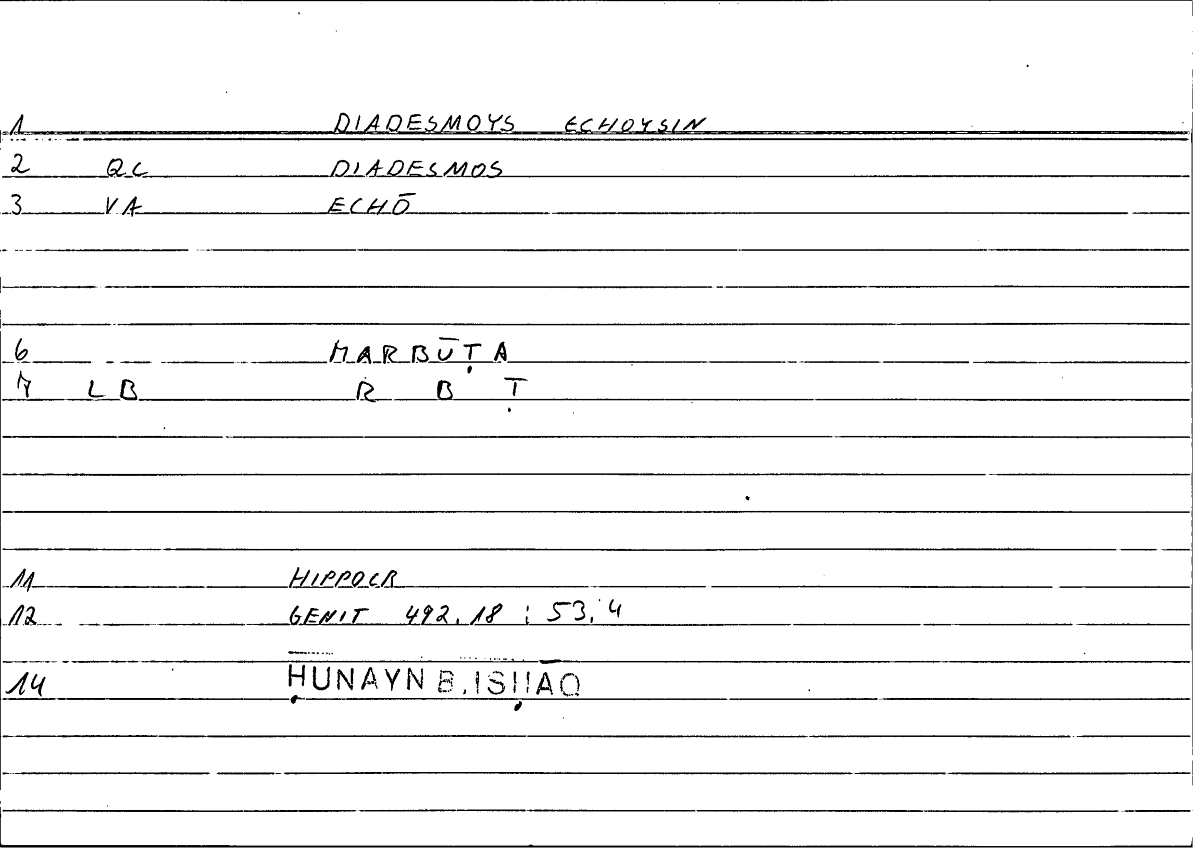 1 DIADESMOYS ECHOYSIN
2 QC DIADESMOS
3 VA ECHŌ
6 MARBŪṬA
7 LB R B Ṭ
11 HIPPOCR
12 GENIT 492.18 ; 53.4
14 ḤUNAYN B. ISḤĀQ